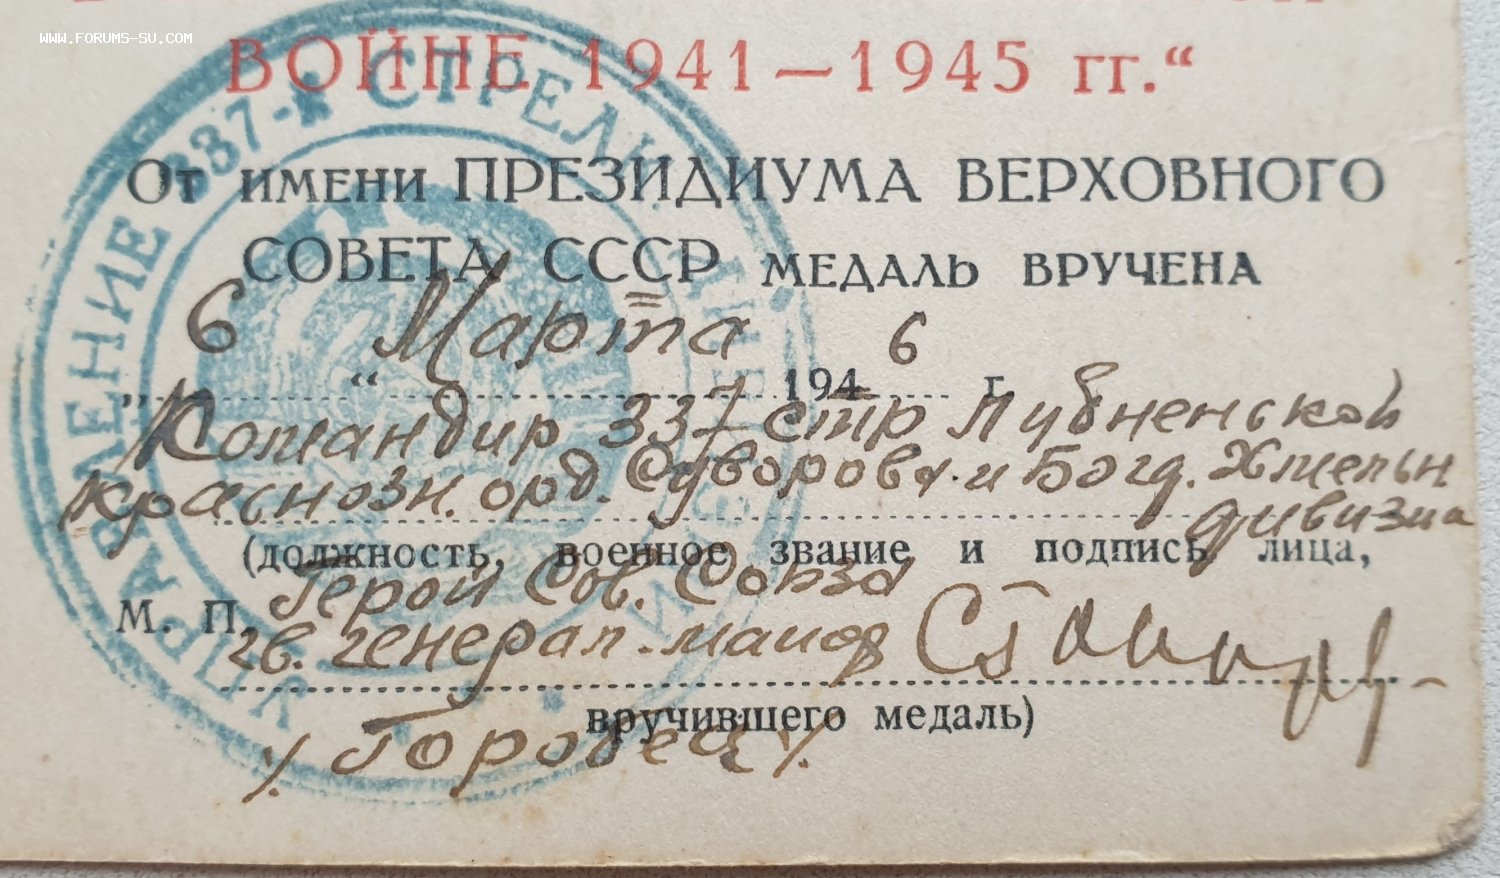 WWW.FORUMS-SU.COM
ВОЙНЕ 1941—1945 гг.“
УПРАВЛЕНИЕ 337-й СТРЕЛК
От имени ПРЕЗИДИУМА ВЕРХОВНОГО
СОВЕТА СССР МЕДАЛЬ ВРУЧЕНА
„6“ Марта 1946 г.
Командир 337 стр Лубненской
Краснозн. орд. Суворова и Богд. Хмельн
дивизиа
(должность, военное звание и подпись лица,
Герой Сов. Союза
М. П. гв. генерал-майор
вручившего медаль)
/Горобец/